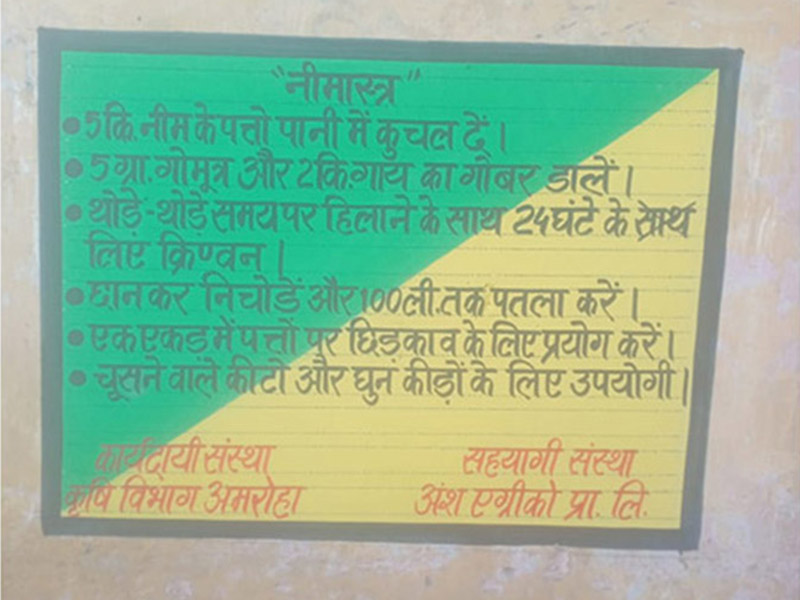 "नीमास्त्र"
• 5 कि. नीम के पत्तो पानी में कुचल दें।
• 5 ग्रा. गोमूत्र और 2 कि. गाय का गोबर डालें।
• थोड़े-थोड़े समय पर हिलाने के साथ 24 घंटे के साथ
लिए क्रिण्वन।
• छान कर निचोड़ें और 100 ली. तक पतला करें।
• एक एकड़ में पत्तों पर छिड़काव के लिए प्रयोग करें।
• चूसने वाले कीटों और घुन कीड़ों के लिए उपयोगी।
कार्यदायी संस्था सहयागी संस्था
कृषि विभाग अमरोहा अंश एग्रीको प्रा. लि.